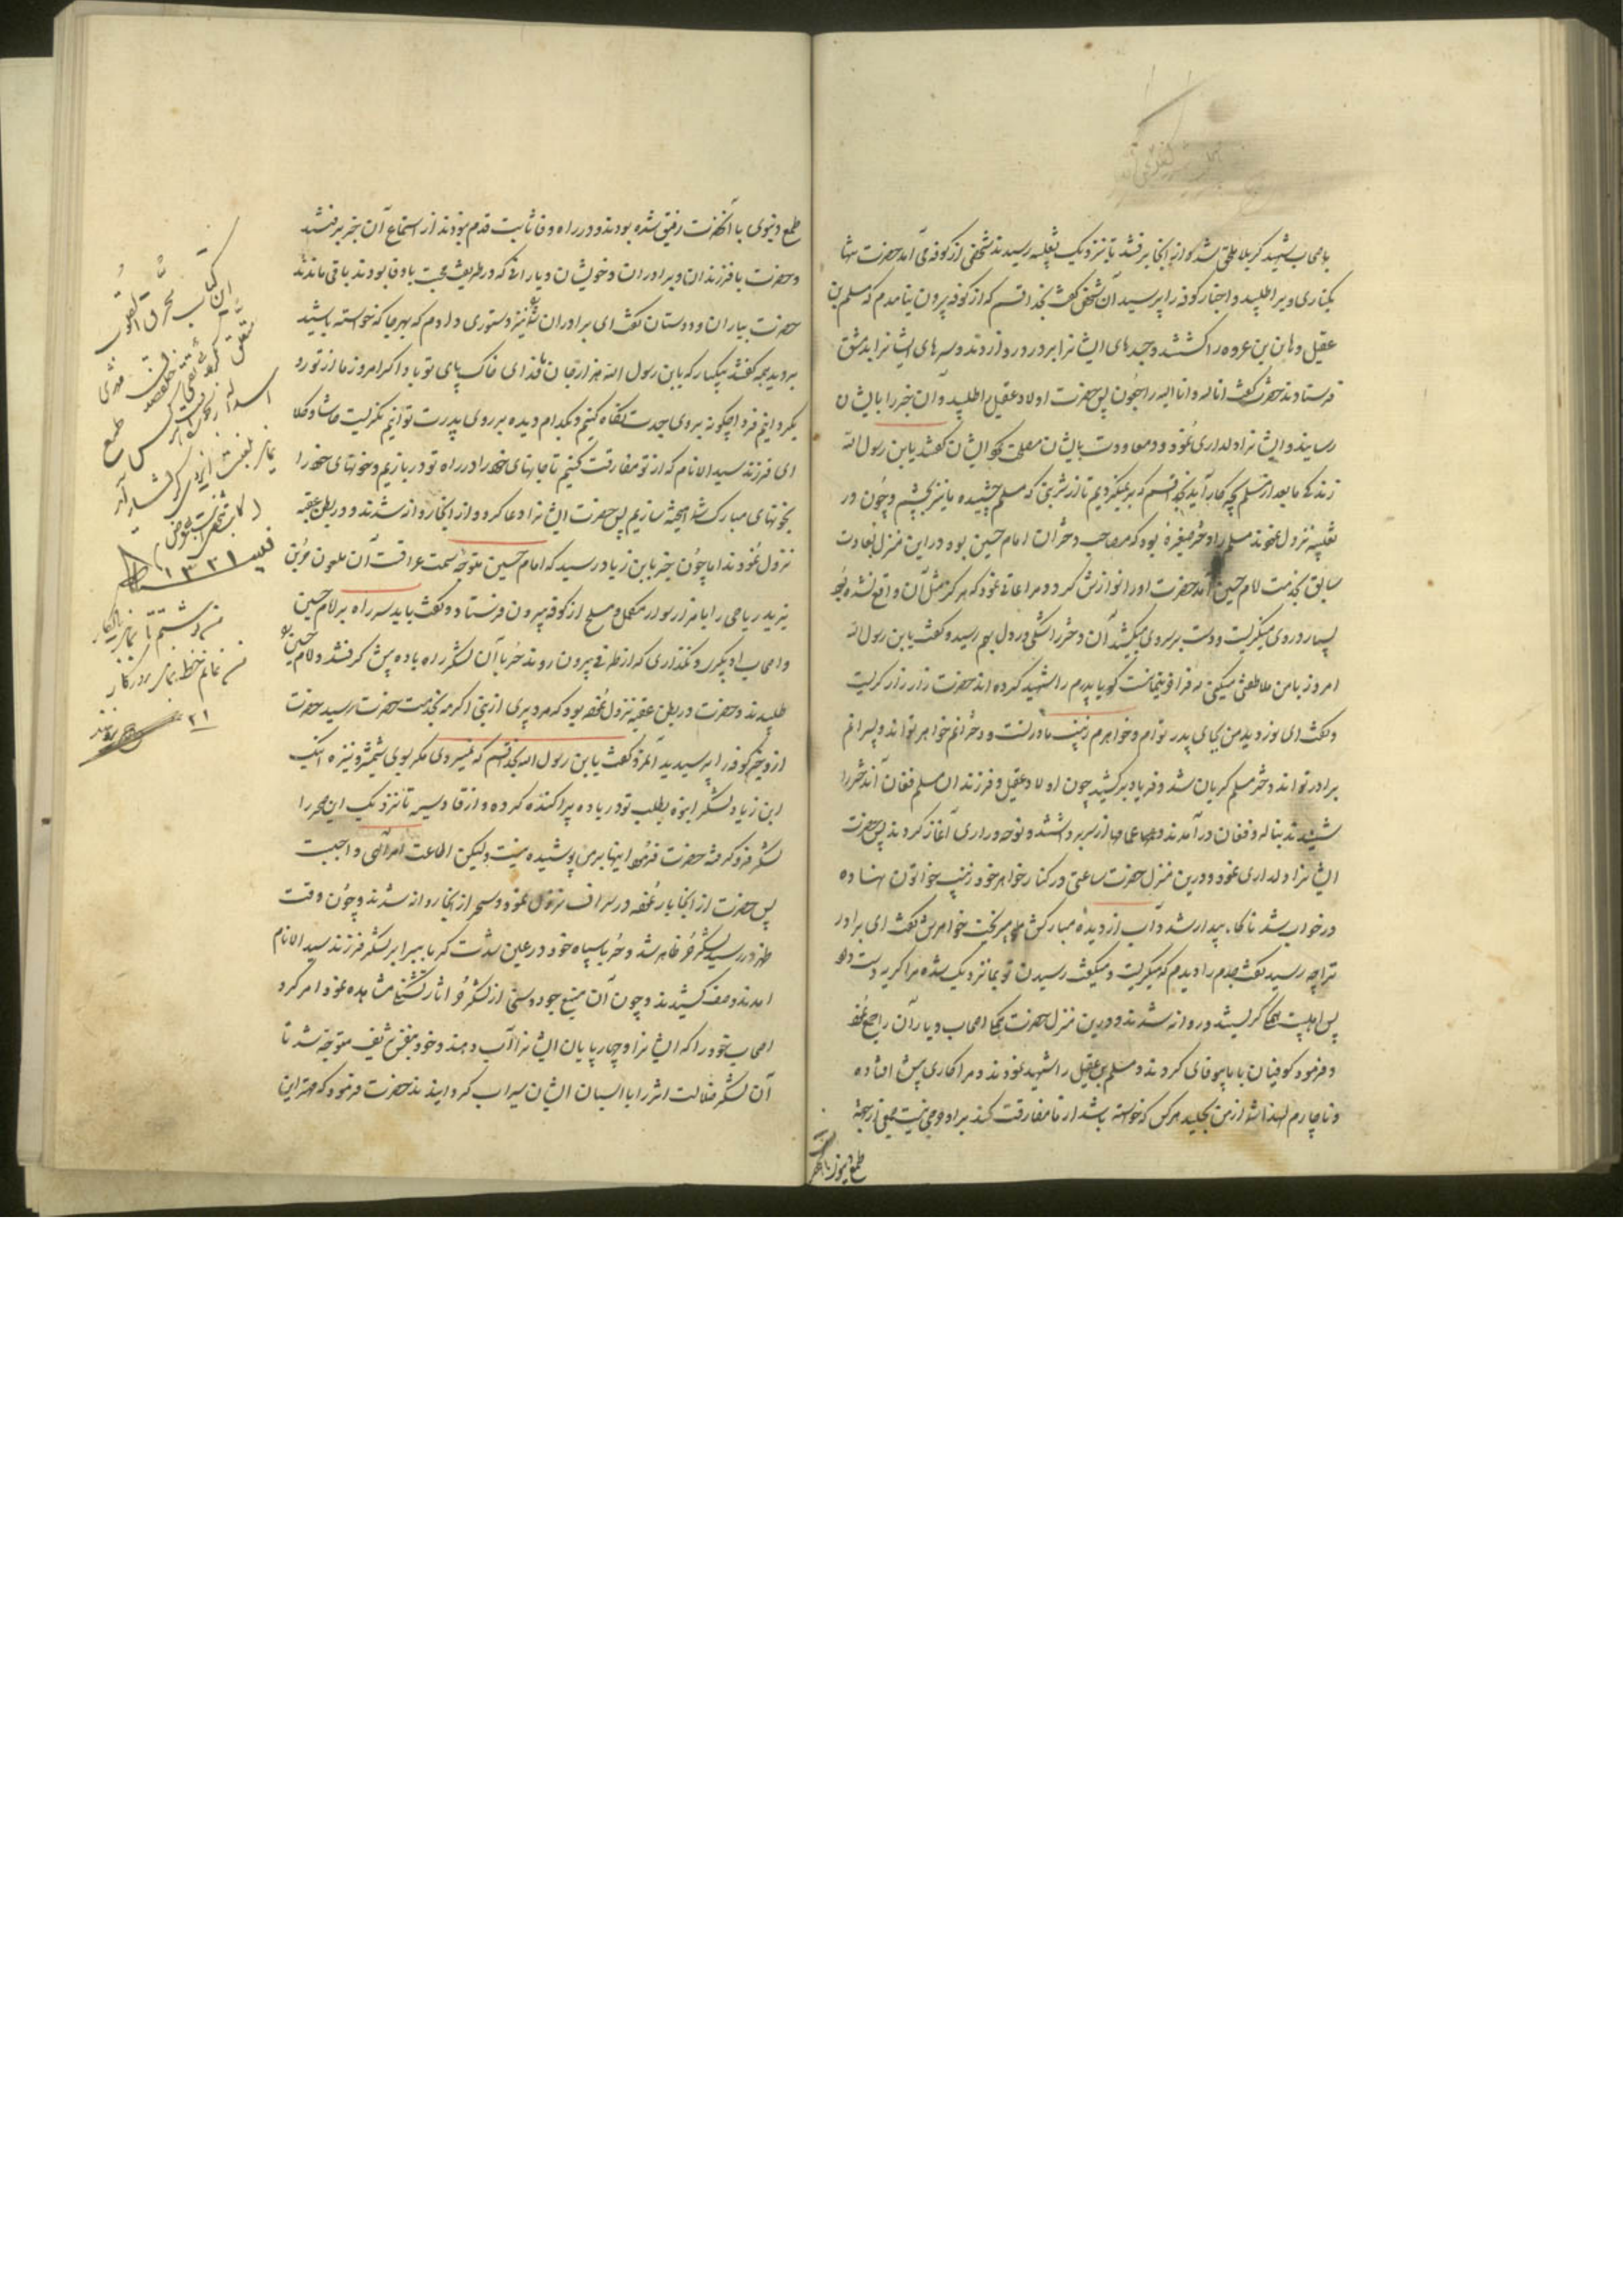 باصحاب شهید کربلا ملحق شد و از آنجا برفتند تا نزدیک ثعلبیه رسیدند شخصی از کوفه می آمد حضرت شاه
بکناری ویرا طلبید و اخبار کوفه را پرسید آن شخص گفت بخدا قسم که از کوفه بیرون نیامدم که مسلم بن
عقیل و هانی بن عروه را کشتند و جسدهای ایشانرا بر در دروازه و سرهای ایشانرا بدمشق
فرستادند حضرت گفت انا لله و انا الیه راجعون پس حضرت اولاد عقیل را طلبید و آن خبر را بایشان
رسانید و ایشانرا دلداری نمود و در معاودت بایشان مصلحت ایشان گفتند یابن رسول الله
زندگی ما بعد از مسلم بچه کار آید بخدا قسم که بر نمیگردیم تا از شربتی که مسلم چشیده ما نیز بچشیم و چون در
ثعلبیه نزول نمودند مسلم را دختر صغیره بود که مصاحب دختران امام حسین بود در این منزل بعادت
سابق بخدمت امام حسین آمد حضرت او را نوازش کرد و مراعاتی نمود که هرگز مثل آن واقع نشده بود
بسیار در روی میگریست و دست بر سر وی میکشید آن دختر را شکی در دل بهم رسید و گفت یابن رسول الله
امروز با من ملاطفتی میکنی که فراخور یتیمانست گویا پدرم را شهید کرده اند حضرت زار زار گریست
و گفت ای نور دیده من بجای پدر توام و خواهرم زینب مادر تست و دخترانم خواهر تواند و پسرانم
برادر تواند دختر مسلم گریان شد و فریاد برکشید چون اولاد عقیل و فرزندان مسلم فغان آن دختر را
شنیدند بناله و فغان در آمدند و عمامه ها از سر برداشتند و نوحه و زاری آغاز کردند پس حضرت
ایشانرا دلداری نمود و درین منزل حضرت ساعتی در کنار خواهر خود زینب خواتون نهاده
در خواب شد ناگاه بیدار شد و آب از دیده مبارکش میریخت خواهرش گفت ای برادر
ترا چه رسید گفت جدم را دیدم که میگریست و میگفت رسیدن تو بما نزدیک شده مرا گریه دست داد
پس اهلبیت همه گریستند و روانه شدند و درین منزل حضرت اصحاب و یاران را جمع نمود
و فرمود کوفیان با ما بیوفائی کردند و مسلم بن عقیل را شهید نمودند و مرا کاری پیش افتاده
و ناچارم لهذا شما از من بحلید هر کس که خواسته باشد از ما مفارقت کند بر او حرجی نیست جمعی از بجهة
طمع دنیوی با آنحضرت رفیق شده بودند و در راه وفا ثابت قدم نبودند از استماع آن خبر برفتند
و حضرت با فرزندان و برادران و خویشان و یارانی که در طریق محبت با وفا بودند باقی ماندند
حضرت بیاران و دوستان گفت ای برادران شما را نیز دستوری دادم که بهر جا که خواسته باشید
بروید همه گفتند بیکبار که یابن رسول الله هزار جان ما فدای خاک پای تو باد اگر امروز ما از تو رو
بگردانیم فردا چگونه بروی جدت نگاه کنیم و بکدام دیده بر روی پدرت توانیم نگریست حاشا و کلا
ای فرزند سید الانام که از تو مفارقت کنیم تا جانهای خود را در راه تو در بازیم و خونهای خود را
بخونهای مبارک شما آمیخته سازیم پس حضرت ایشانرا دعا کرد و از آنجا روانه شدند و در بطن عقبه
نزول نمودند اما چون خبر بابن زیاد رسید که امام حسین متوجه سمت عراقست آن ملعون حر بن
یزید ریاحی را با هزار سوار مکمل و مسلح از کوفه بیرون فرستاد و گفت باید سر راه بر امام حسین
و اصحاب او بگیری و نگذاری که از طرفی بیرون روند حر با آن لشکر راه بادیه پیش گرفتند و امام حسین را
طلبیدند و حضرت در بطن عقبه نزول نموده بود که مرد پیری از بنی اکرمه بخدمت حضرت رسید حضرت
از وی خبر کوفه را پرسید آنمرد گفت یابن رسول الله بخدا قسم که نمیروی مگر بسوی شمشیر و نیزه اینک
ابن زیاد لشکر انبوه بطلب تو در بادیه پراکنده کرده و از قادسیه تا نزدیک این صحرا را
لشکر فرو گرفته حضرت فرمود اینها بر من پوشیده نیست ولیکن اطاعت امر الهی واجبست
پس حضرت از آنجا بار نموده در سراف نزول نمود و سحر از آنجا روانه شدند و چون وقت
ظهر در رسید لشکر حر ظاهر شد و حر با سپاه خود در عین شدت گرما برابر لشکر فرزند سید الانام
آمدند و صف کشیدند و چون آن منبع جود و سخی از لشکر حر آثار تشنگی مشاهده نمود امر کرد
اصحاب خود را که ایشانرا و چارپایان ایشانرا آب دهند و خود بنفس شریف متوجه شد تا
آن لشکر ضلالت اثر را با اسبان ایشان سیراب گردانیدند حضرت فرمود که مهتر این
طمع دنیوی با آنحضرت
این کتاب محرق القلوب
۱۳۳۱
نوشتم تا بماند یادگار
من نمانم خط بماند روزگار
۳۱